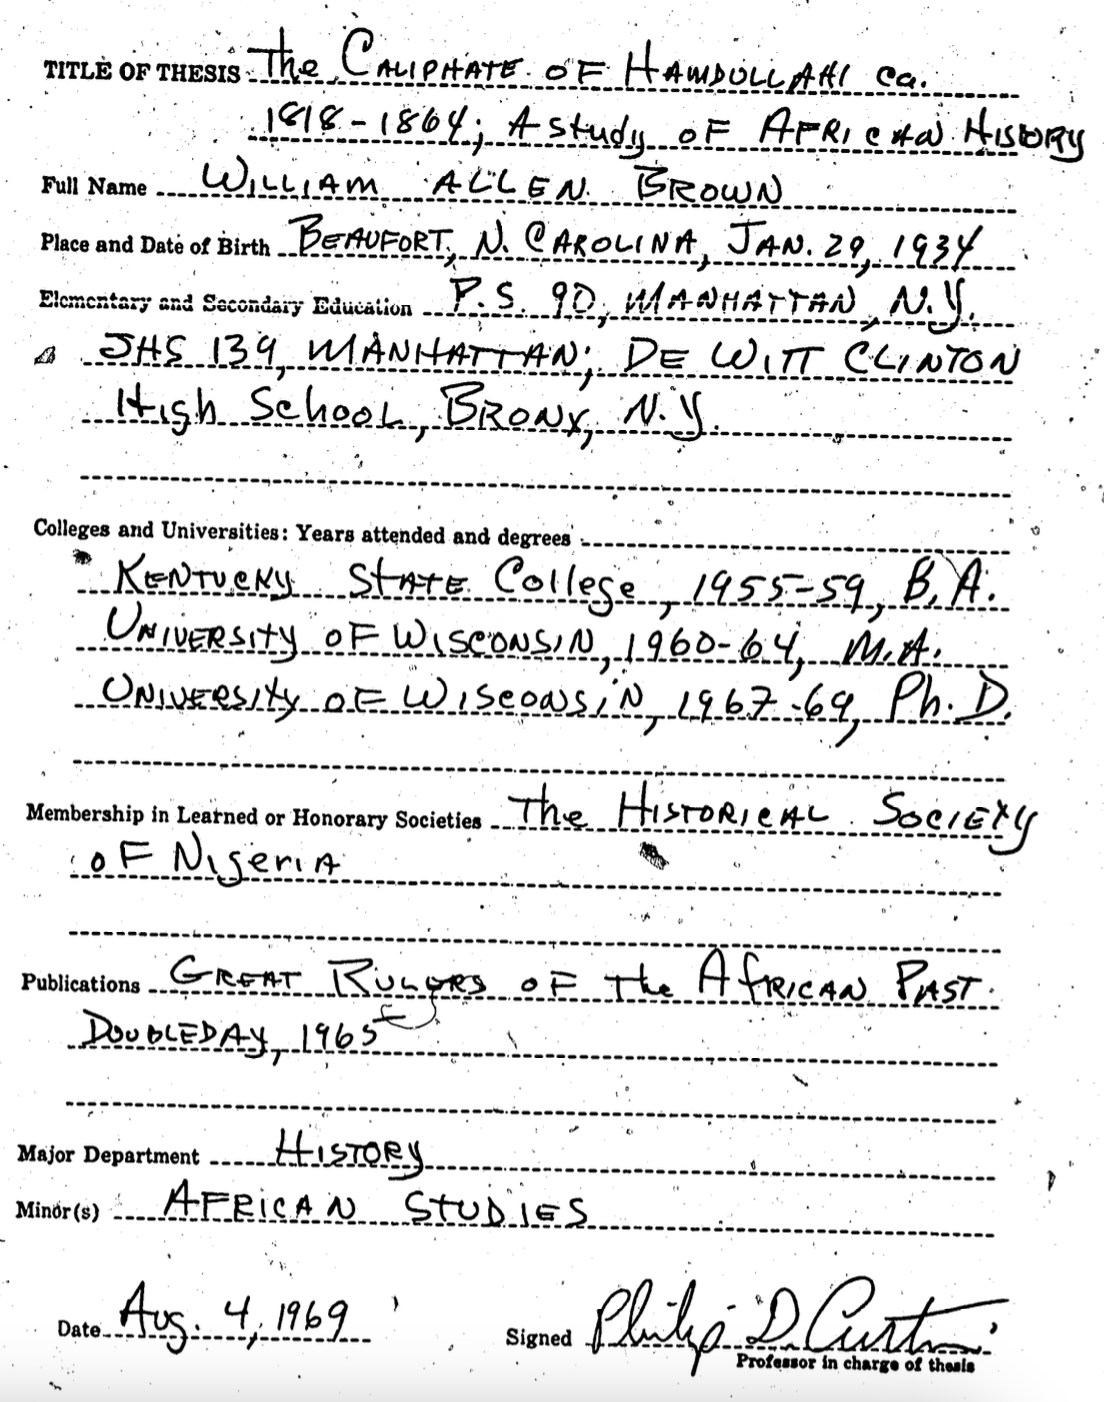 TITLE OF THESIS The CALIPHATE OF HAMDULLAHI ca.
1818-1864; A Study OF AFRICAN HISTORY
Full Name WILLIAM ALLEN BROWN
Place and Date of Birth BEAUFORT, N. CAROLINA, JAN. 29, 1934
Elementary and Secondary Education P.S. 90, MANHATTAN, N.Y.
JHS 139, MANHATTAN; DE WITT CLINTON
High School, BRONX, N.Y.
Colleges and Universities: Years attended and degrees
KENTUCKY STATE College, 1955-59, B.A.
UNIVERSITY OF WISCONSIN, 1960-64, M.A.
UNIVERSITY OF WISCONSIN, 1967-69, Ph.D.
Membership in Learned or Honorary Societies The HISTORICAL SOCIETY
OF NIGERIA
Publications GREAT RULERS OF the AFRICAN PAST
DOUBLEDAY, 1965
Major Department HISTORY
Minor(s) AFRICAN STUDIES
Date Aug. 4, 1969 Signed Philip D. Curtin
Professor in charge of thesis